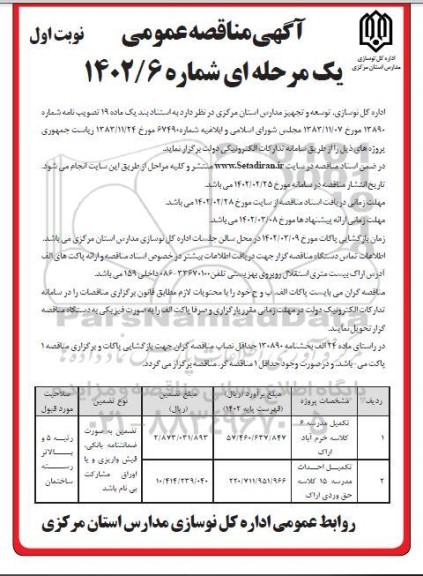 آگهی مناقصه عمومی
نوبت اول
یک مرحله ای شماره ۱۴۰۲/۶
اداره کل نوسازی
مدارس استان مرکزی
اداره کل نوسازی، توسعه و تجهیز مدارس استان مرکزی در نظر دارد به استناد بند یک ماده ۱۹ تصویب نامه شماره
۱۳۸۹۰ مورخ ۱۳۸۳/۱۱/۰۷ مجلس شورای اسلامی و ابلاغیه شماره ۶۷۴۹۰ مورخ ۱۳۸۳/۱۱/۲۴ ریاست جمهوری
پروژه های ذیل را از طریق سامانه تدارکات الکترونیکی دولت برگزار نماید.
در ضمن اسناد مناقصه در سایت www.Setadiran.ir منتشر و کلیه مراحل از طریق این سایت انجام می شود.
تاریخ انتشار مناقصه در سامانه مورخ ۱۴۰۲/۰۲/۲۵ می باشد.
مهلت زمانی دریافت اسناد مناقصه از سایت مورخ ۱۴۰۲/۰۲/۲۸ می باشد.
مهلت زمانی ارائه پیشنهاد ها مورخ ۱۴۰۲/۰۳/۰۸ می باشد.
زمان بازگشایی پاکات مورخ ۱۴۰۲/۰۳/۰۹ در محل سالن جلسات اداره کل نوسازی مدارس استان مرکزی می باشد.
اطلاعات تماس دستگاه مناقصه گزار جهت دریافت اطلاعات بیشتر در خصوص اسناد مناقصه و ارائه پاکت های الف
آدرس اراک بیست متری استقلال روبروی بهزیستی تلفن ۳۳۶۷۰۱۰۰-۰۸۶ داخلی ۱۵۹ می باشد.
مناقصه گران می بایست پاکات الف، ب و ج خود را با محتویات لازم مطابق قانون برگزاری مناقصات را در سامانه
تدارکات الکترونیک دولت در مهلت زمانی مقرر بارگزاری و صرفا پاکت الف را به صورت فیزیکی به دستگاه مناقصه
گزار تحویل نمایند.
در راستای ماده ۲۴ الف بخشنامه ۱۳۰۸۹۰ حداقل نصاب مناقصه گران جهت بازگشایی پاکات و برگزاری مناقصه ۱
پاکت می باشد، و در صورت وجود حداقل ۱ مناقصه گر، مناقصه برگزار می گردد.
ردیف | مشخصات پروژه | مبلغ برآورد (ریال) (فهرست پایه ۱۴۰۲) | مبلغ تضمین (ریال) | نوع تضمین | صلاحیت مورد قبول
۱ | تکمیل مدرسه ۶ کلاسه خرم آباد اراک | ۵۷/۴۶۰/۶۳۷/۸۴۷ | ۲/۸۷۳/۰۳۱/۸۹۳ | تضمین به صورت ضمانتنامه بانکی، فیش واریزی و یا اوراق مشارکت بی نام باشد | رتبه ۵ و بالاتر رسته ساختمان
۲ | تکمیل احداث مدرسه ۱۵ کلاسه حق وردی اراک | ۲۲۰/۷۱۱/۹۵۱/۹۶۶ | ۱۰/۴۱۴/۲۳۹/۰۴۰
روابط عمومی اداره کل نوسازی مدارس استان مرکزی
ParsNamadData
۰۲۱-۸۸۳۴۹۶۷۰-۵